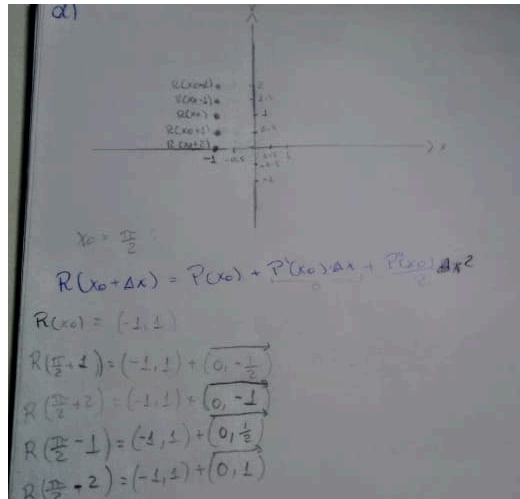 d)
y
R(x0-2)
2
R(x0-1)
1.5
R(x0)
1
R(x0+1)
0.5
R(x0+2)
-1
-0.5
0.5
1
x
-0.5
-1
x0 = π/2
R(x0+Δx) = P(x0) + P'(x0)·Δx + P''(x0)/2 Δx²
0
R(x0) = (-1,1)
R(π/2+1) = (-1,1) + (0, -1/2)
R(π/2+2) = (-1,1) + (0, -1)
R(π/2-1) = (-1,1) + (0, 1/2)
R(π/2-2) = (-1,1) + (0, 1)